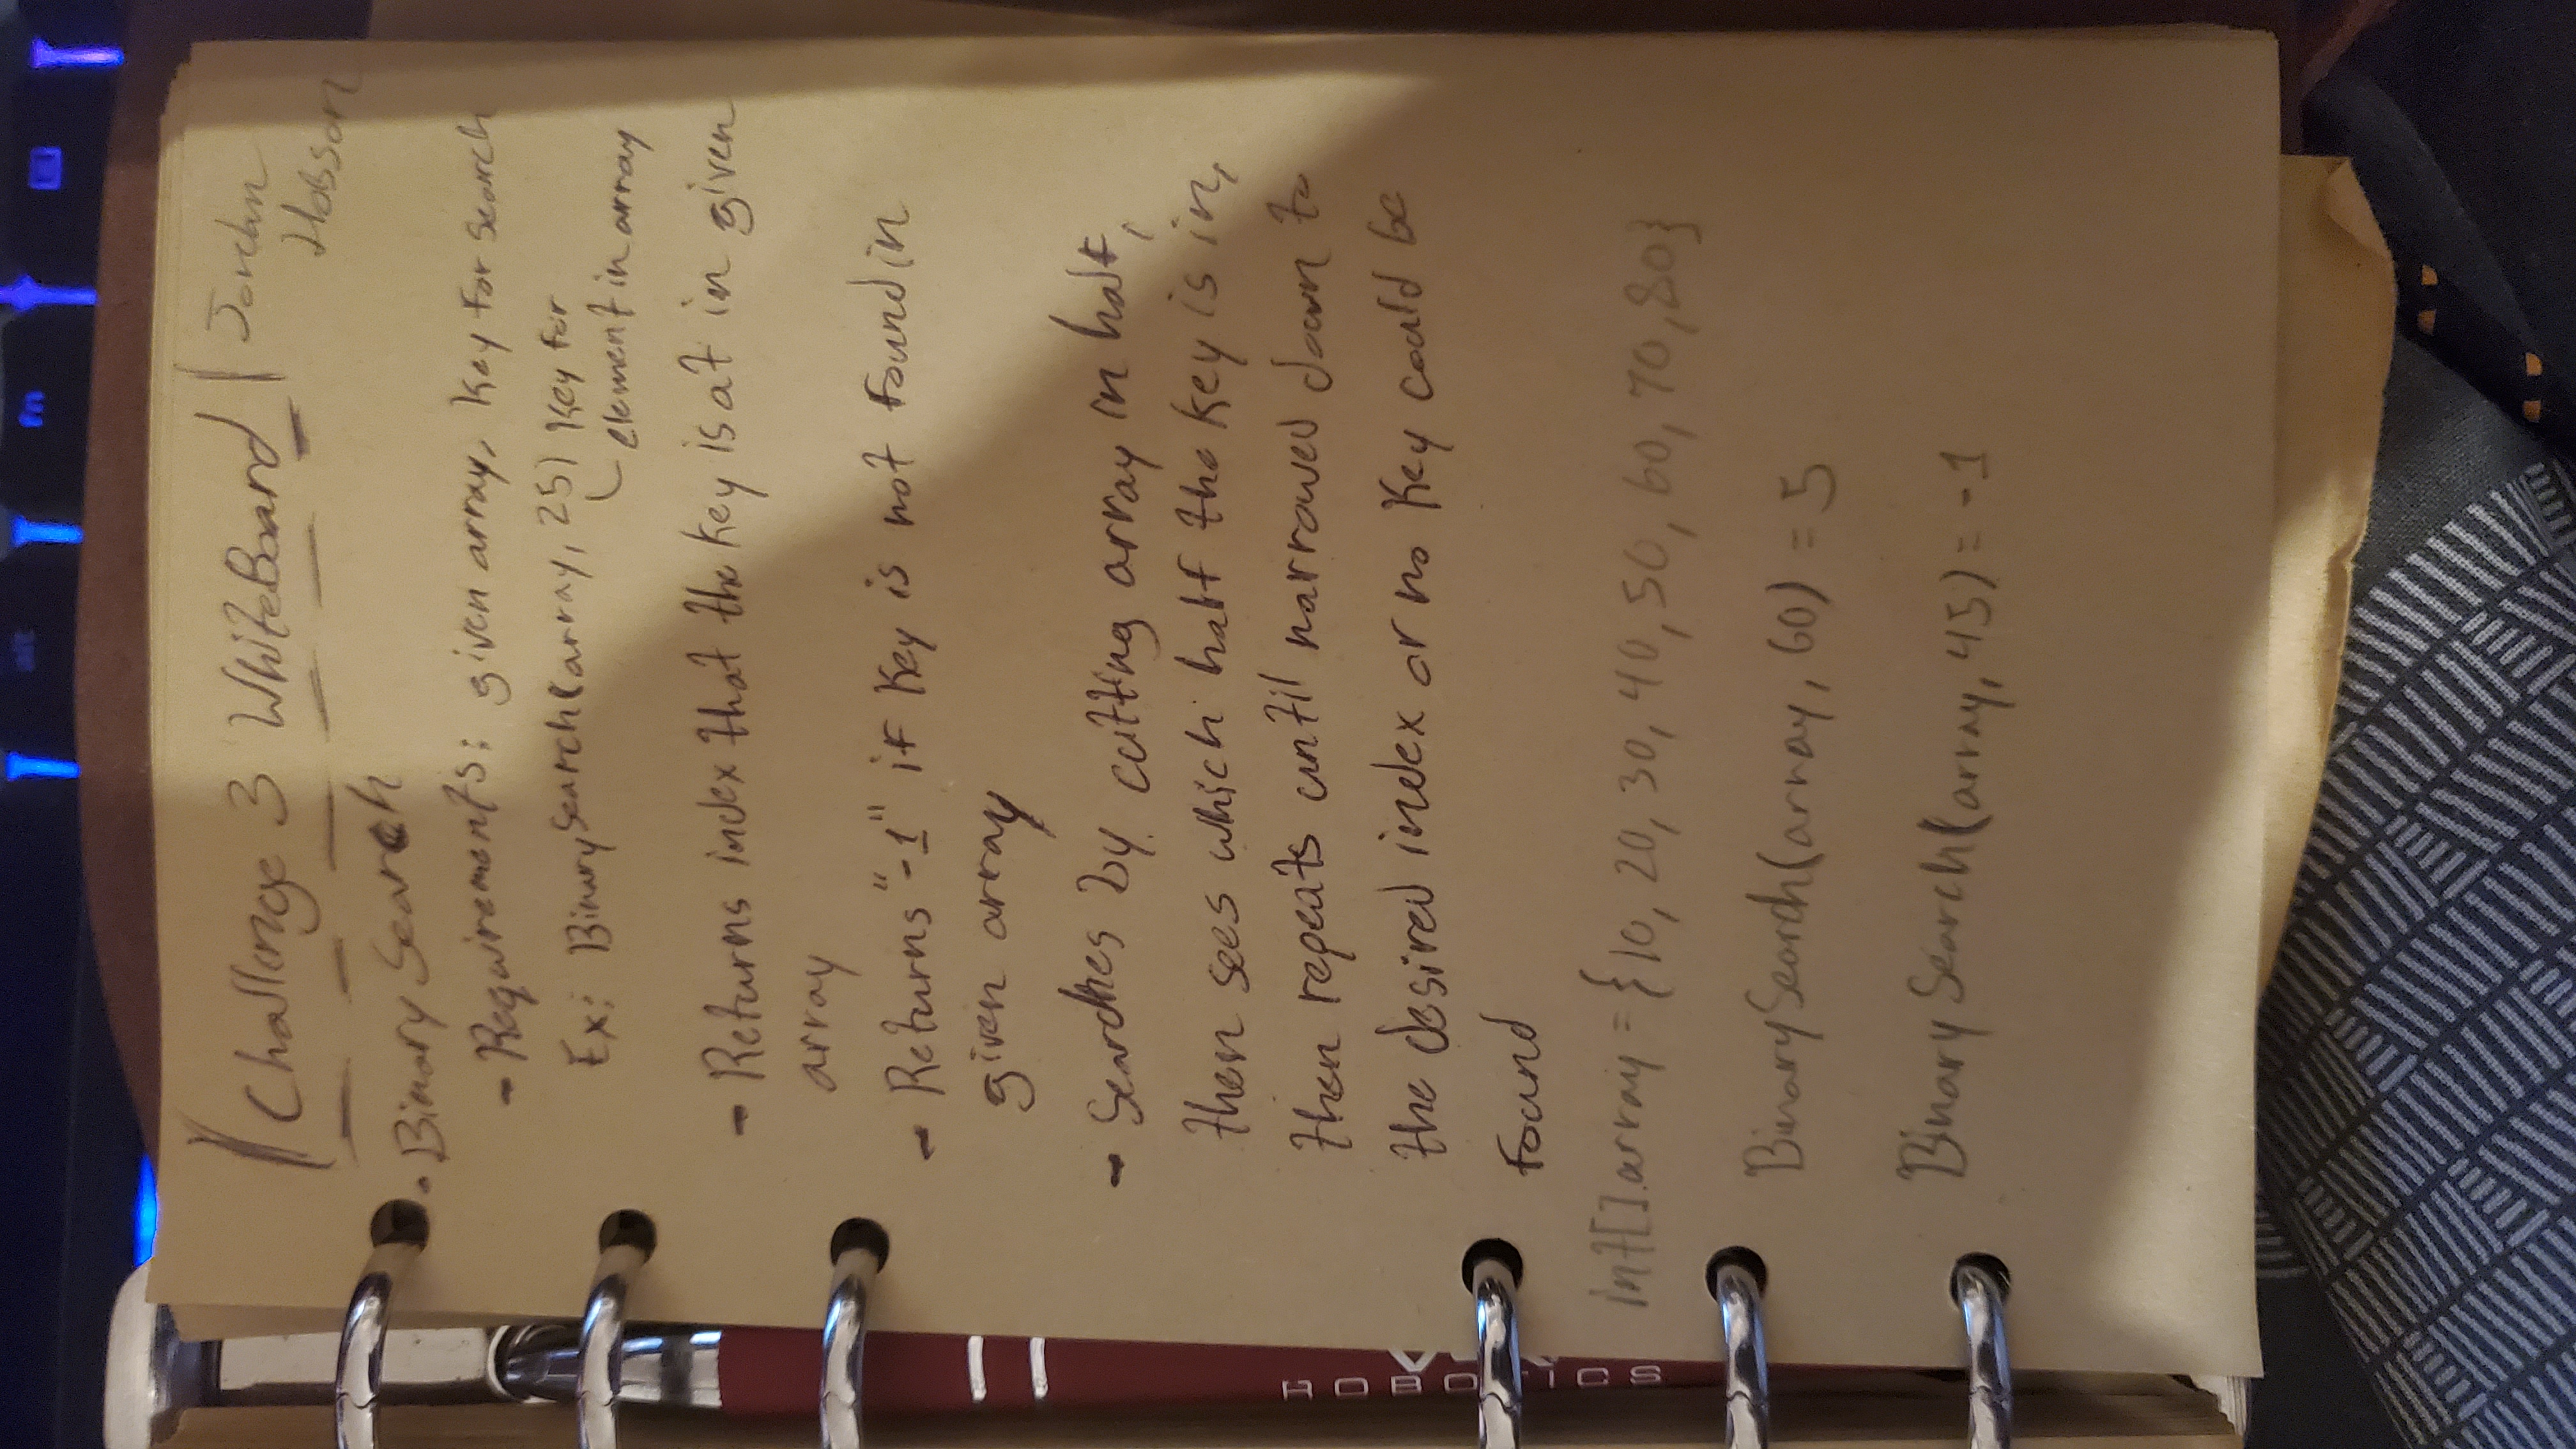 alt fn
Challenge 3 WhiteBoard Jordan
Hobson
• Binary Search
- Requirements: given array, Key for search
Ex: BinarySearch(array, 25) Key for
element in array
- Returns index that the Key is at in given
array
- Returns "-1" if Key is not found in
given array
- Searches by cutting array in half,
then sees which half the key is in,
then repeats until narrowed down to
the desired index or no Key could be
found
int[] array = {10, 20, 30, 40, 50, 60, 70, 80}
BinarySearch(array, 60) = 5
BinarySearch(array, 45) = -1